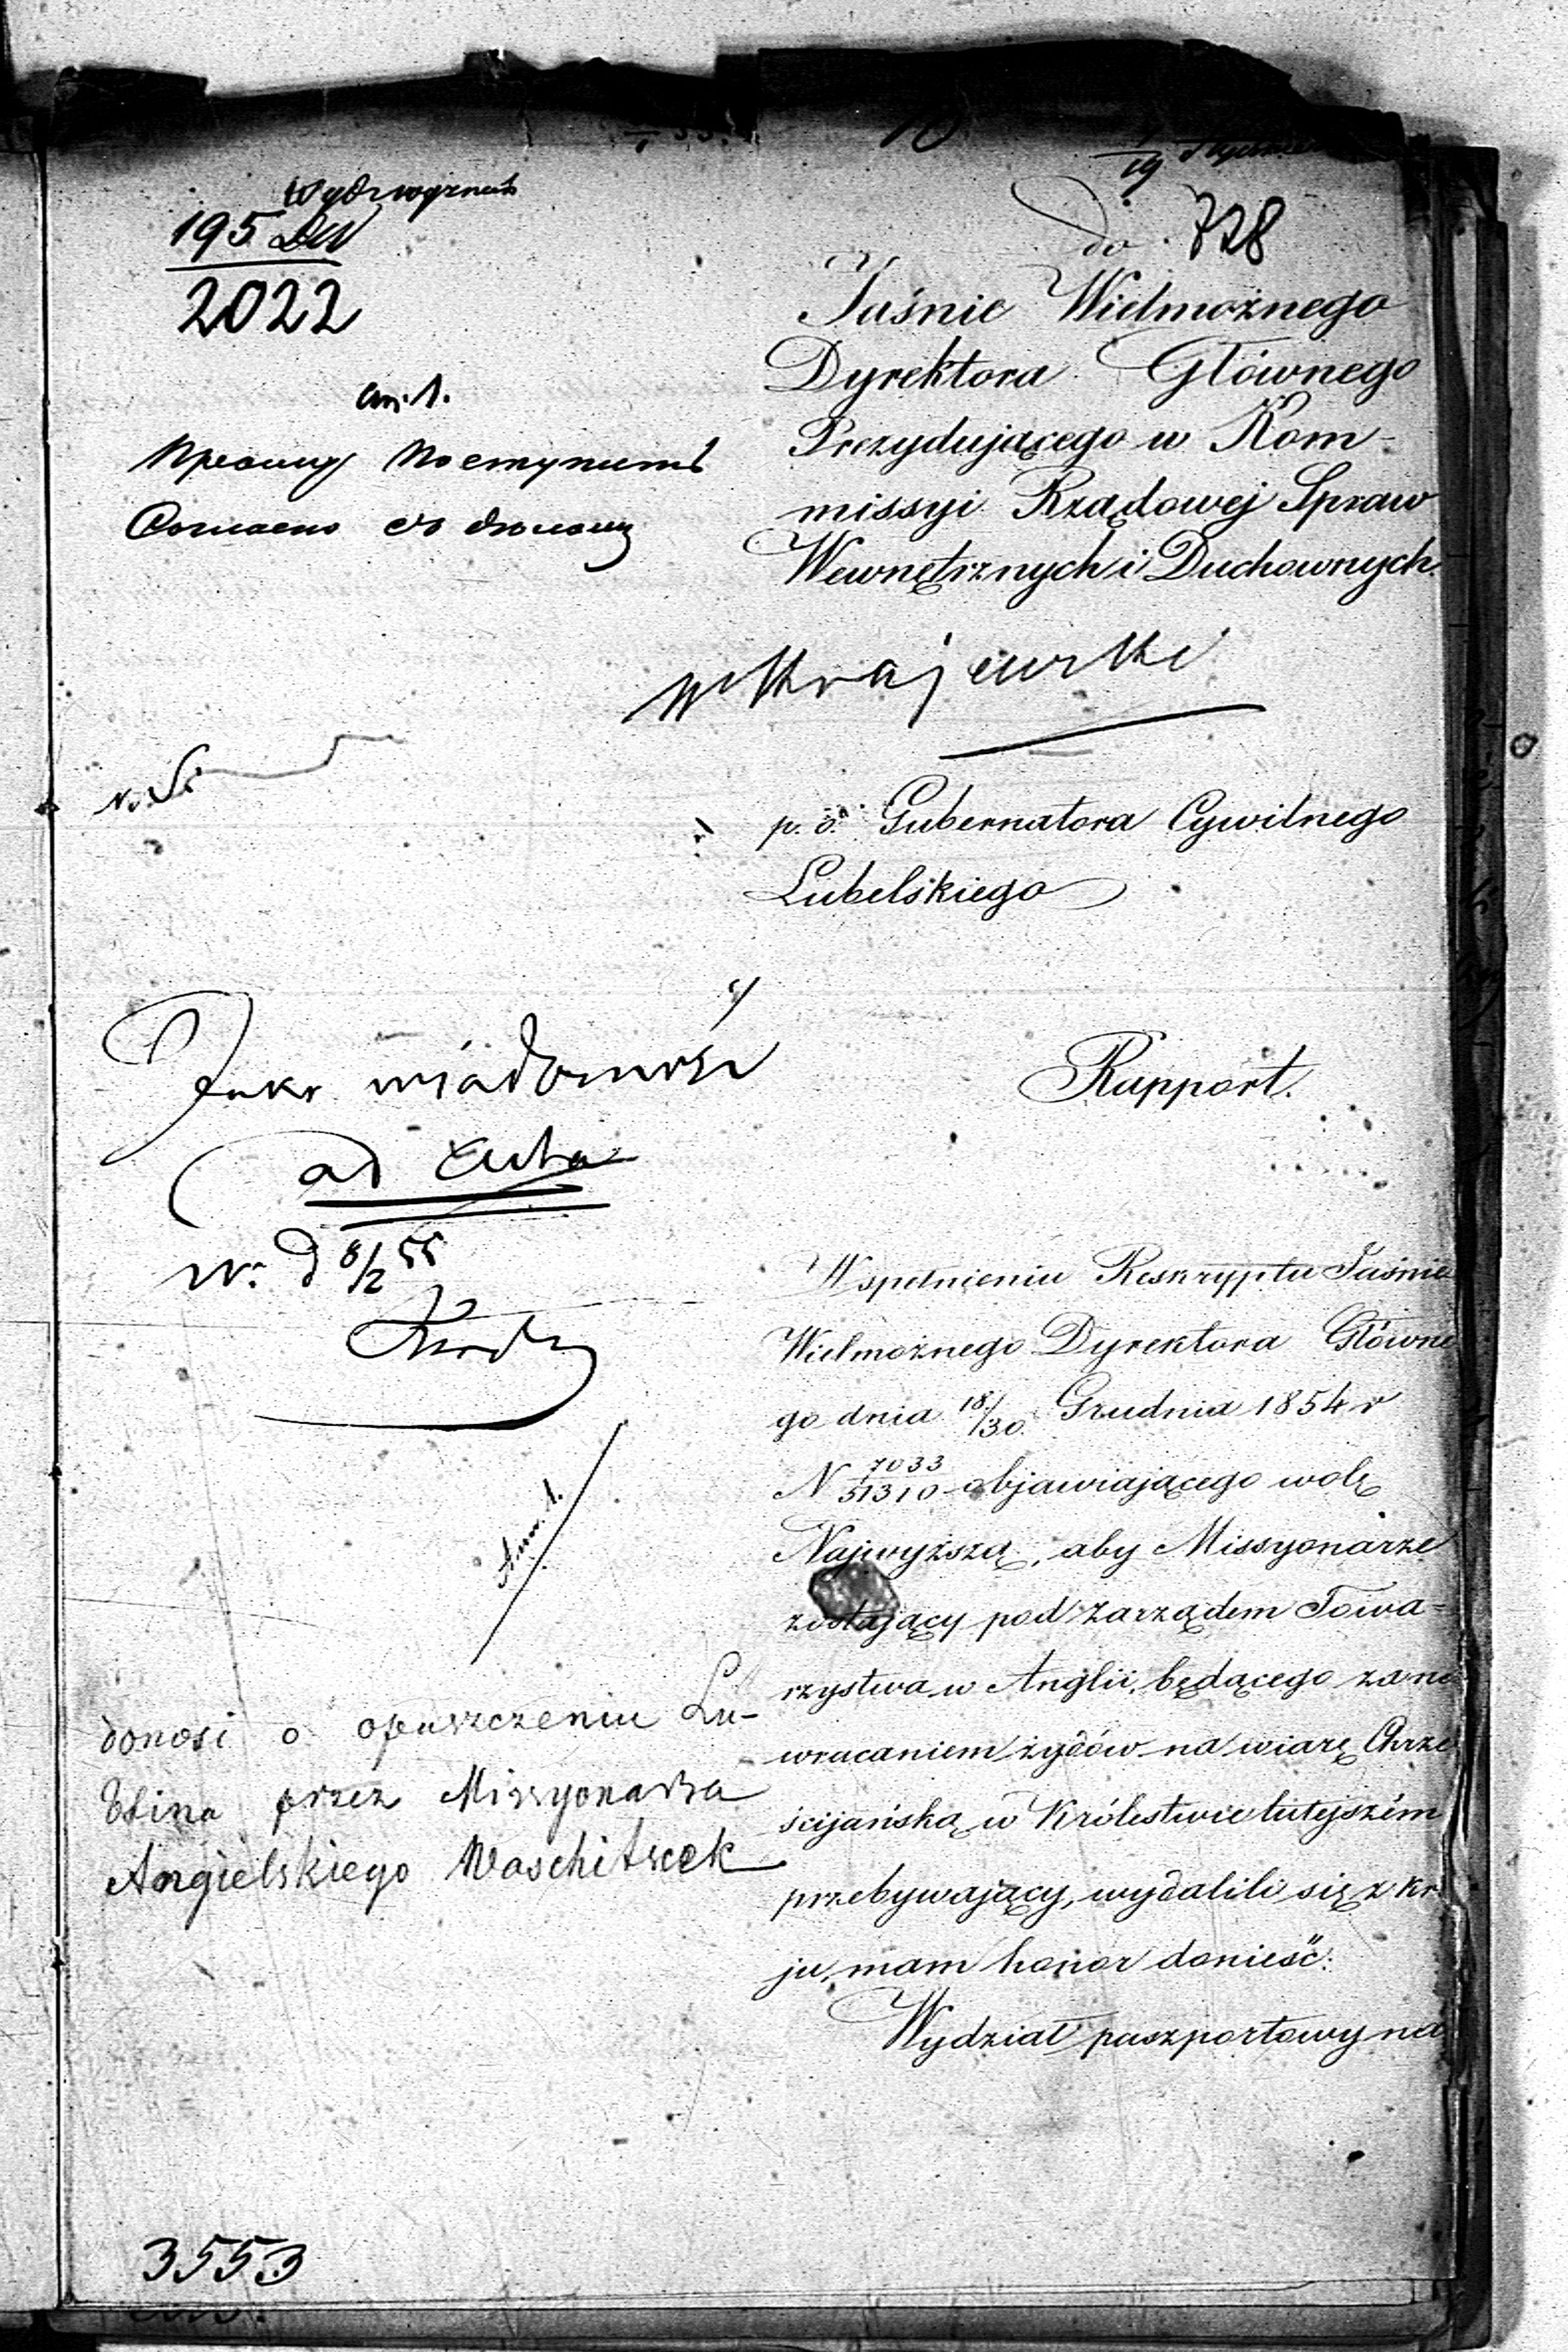 Wydz wyznań
195 DW
2022
an. 1.
do 728
Jaśnie Wielmożnego
Dyrektora Głównego
Prezydującego w Kom-
missyi Rządowej Spraw
Wewnętrznych i Duchownych.
p. o. Gubernatora Cywilnego
Lubelskiego
Jako wiadomość
ad acta
W. d 8/2 55
Rapport.
W spełnieniu Reskryptu Jaśnie
Wielmożnego Dyrektora Główne
go dnia 18/30 Grudnia 1854 r
N 7033/51310 objawiającego wolę
Najwyższą, aby Missyonarze
zostający pod zarządem Towa=
rzystwa w Anglii, będącego za na
wracaniem żydów na wiarę Chrze
ścijańską w Królestwie tutejszém
przebywający, wydalili się z kr
ju, mam honor donieść:
Wydział paszportowy na
Ann. 1.
donosi o opuszczeniu Lu-
blina przez Missyonarza
Angielskiego Waschitscek
3553